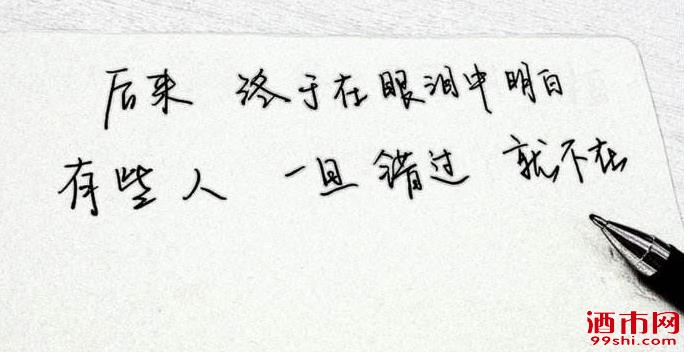 后来 终于在眼泪中明白
有些人 一旦错过 就不在
酒市网
99shi.com